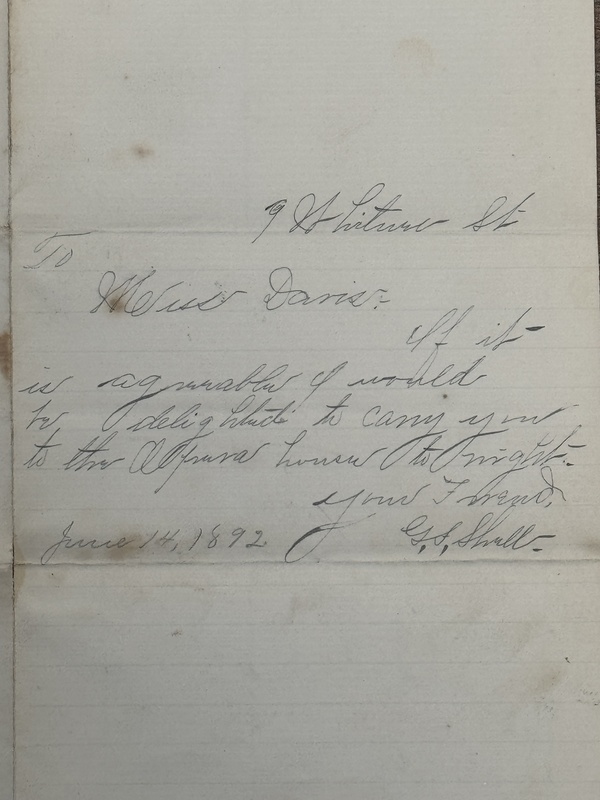 9 St
To
Miss Davis:
If it
is agreeable I would
be delighted to carry you
to the Opera house to night.
your Friend,
June 14, 1892 G.S.